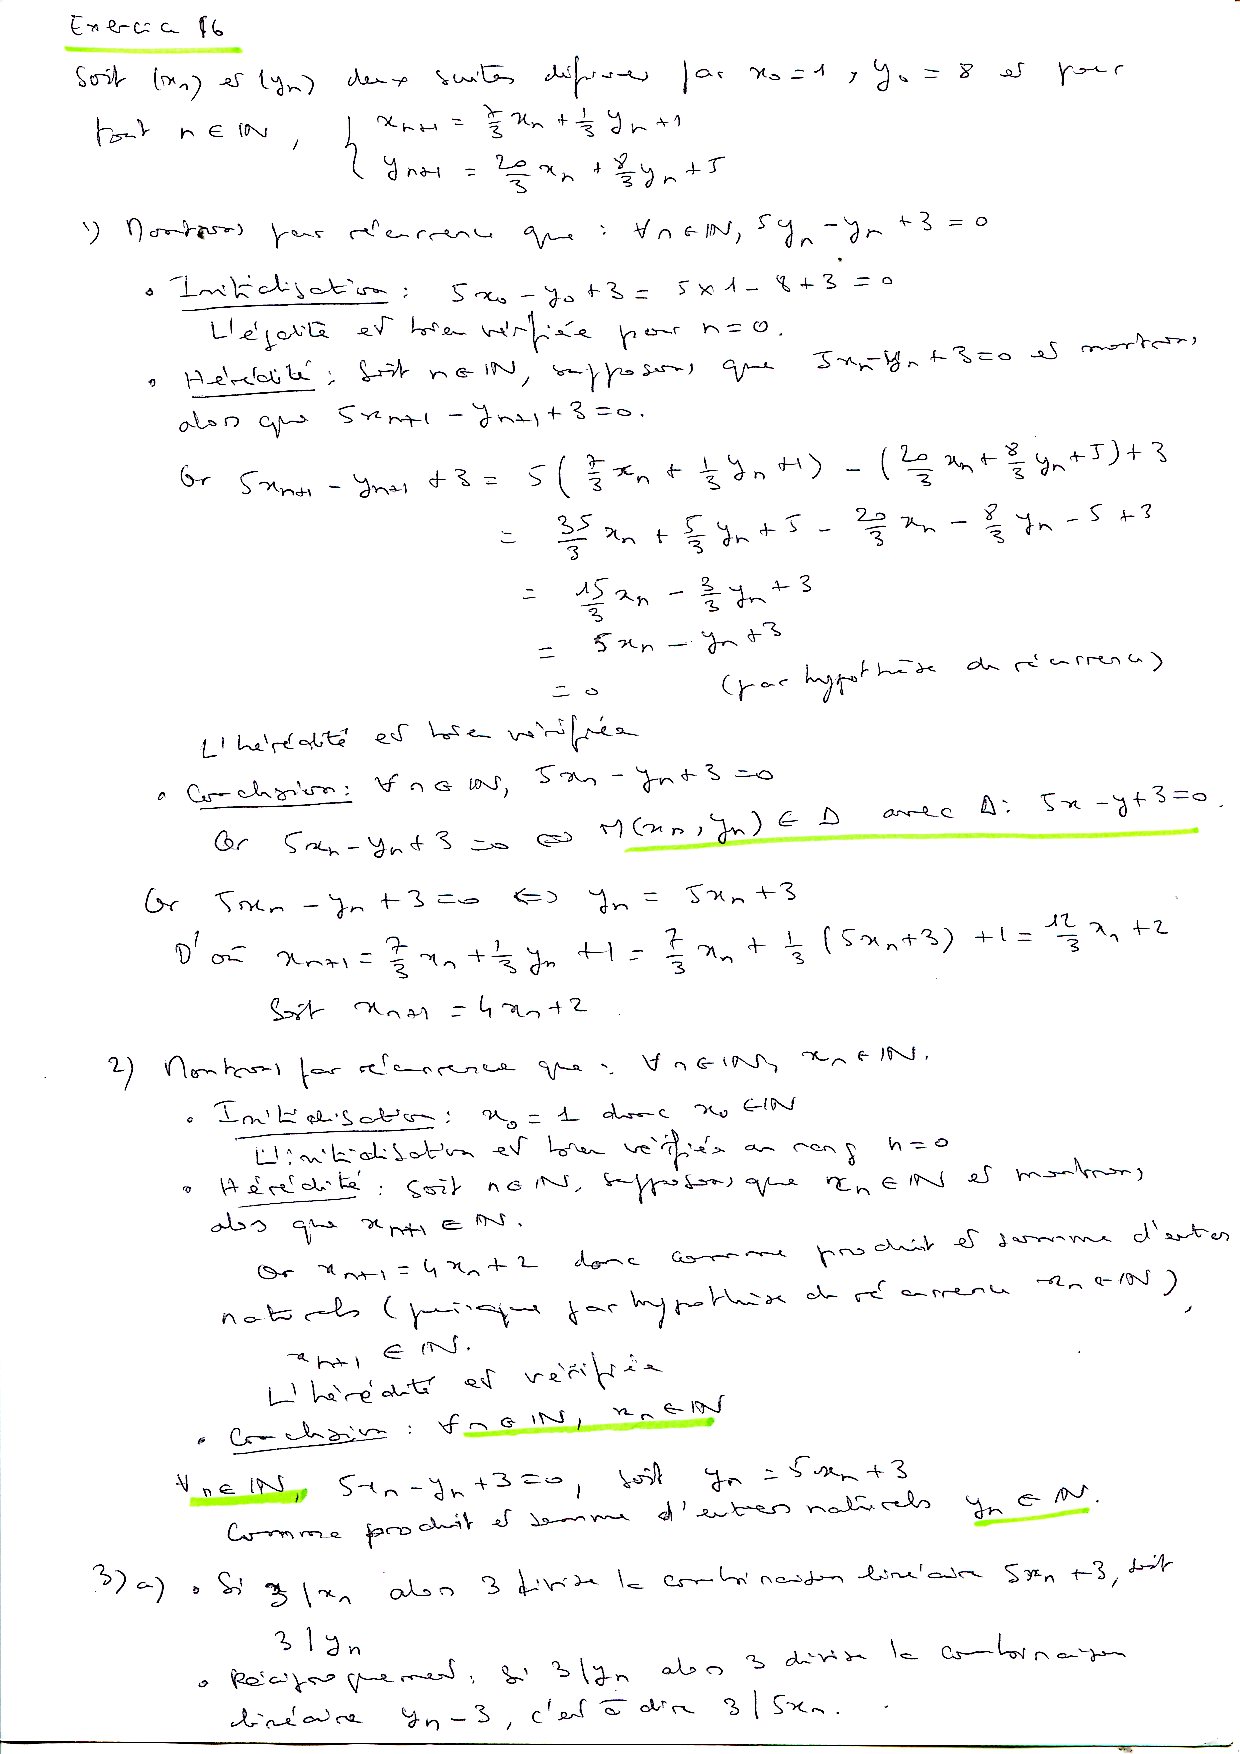 Exercice 16
Soit (xn) et (yn) deux suites définies par x0 = 1, y0 = 8 et pour
tout n ∈ ℕ, { xn+1 = 7/3 xn + 1/3 yn + 1
yn+1 = 20/3 xn + 8/3 yn + 5
1) Montrons par récurrence que : ∀n∈ℕ, 5yn - yn + 3 = 0
• Initialisation : 5x0 - y0 + 3 = 5×1 - 8 + 3 = 0
L'égalité est bien vérifiée pour n = 0.
• Hérédité : Soit n∈ℕ, supposons que 5xn - yn + 3 = 0 et montrons
alors que 5xn+1 - yn+1 + 3 = 0.
Or 5xn+1 - yn+1 + 3 = 5(7/3 xn + 1/3 yn + 1) - (20/3 xn + 8/3 yn + 5) + 3
= 35/3 xn + 5/3 yn + 5 - 20/3 xn - 8/3 yn - 5 + 3
= 15/3 xn - 3/3 yn + 3
= 5xn - yn + 3
= 0 (par hypothèse de récurrence)
L'hérédité est bien vérifiée
• Conclusion : ∀n∈ℕ, 5xn - yn + 3 = 0
Or 5xn - yn + 3 = 0 ⇔ M(xn, yn) ∈ Δ avec Δ : 5x - y + 3 = 0.
Or 5xn - yn + 3 = 0 ⇔ yn = 5xn + 3
D'où xn+1 = 7/3 xn + 1/3 yn + 1 = 7/3 xn + 1/3 (5xn + 3) + 1 = 12/3 xn + 2
Soit xn+1 = 4xn + 2.
2) Montrons par récurrence que : ∀n∈ℕ, xn∈ℕ.
• Initialisation : x0 = 1 donc x0 ∈ℕ
L'initialisation est bien vérifiée au rang n = 0
• Hérédité : Soit n∈ℕ, supposons que xn∈ℕ et montrons
alors que xn+1 ∈ ℕ.
Or xn+1 = 4xn + 2 donc comme produit et somme d'entiers
naturels (puisque par hypothèse de récurrence xn∈ℕ),
xn+1 ∈ ℕ.
L'hérédité est vérifiée
• Conclusion : ∀n∈ℕ, xn∈ℕ
∀n∈ℕ, 5xn - yn + 3 = 0, soit yn = 5xn + 3
Comme produit et somme d'entiers naturels yn ∈ ℕ.
3) a) • Si 3 | xn alors 3 divise la combinaison linéaire 5xn + 3, soit
3 | yn
• Réciproquement, si 3 | yn alors 3 divise la combinaison
linéaire yn - 3, c'est à dire 3 | 5xn.